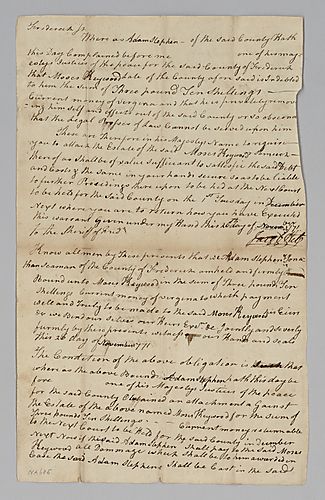 Frederick Js
Whereas Adam Stephen - of the said County Hath
this Day Complained before me one of his maj
estys Justices of the peace for the said County of Frederick
that Moses Keywood late of the County afore said is Indebted
to him the sum of Three pound Ten Shillings -
Current money of vergina and that he is privately remov
ing him self and effects out of the said County or so absconds
that the Legal Process of Law Cannot be served upon him
These are therefore in his Majestys Name to require
you to attach the Estate of the said Moses Keywood
there of as Shall be of value sufficient to satisfie the said Debt
and Costs & the same in your hands secure so as to be liable
to further Proceedings there upon to be had at the Next Court
to be held for the said County on the 1st Tuesday in December
Next when you are to return how you have Executed
this warrant Given under my Hand this 26 Day of Novemr 1771
to the Sheriff of
Know all men by These presents that we Adam Stephen & Jona
than Seaman of the County of Frederick am held and firmly
Bound unto Moses Keywood in the sum of Three pounds Ten
Shillings Current money of vergina to which payment
well and Truly to be made to the said Moses Keywood his Heirs
&c we Bind our Selves our Heirs Exrs &c Jointly and severly
firmly by these presents witness our Hands and seals
this 26 day of November 1771
The Condition of the above obligation is that
where as the above Bound Adam Stephen hath this day be
fore one of his Majestys Justices of the peace
for the said County obtained an attachment against
the Estate of the above named Moses Keywood for the sum of
Three pounds Ten Shillings - Current money returnable
to the Next Court to be Held for the said County in December
Next Now if the said Adam Stephen Shall pay to the said Moses
Keywood all Dammage which Shall be awarded in
Case the said Adam Stephens Shall be Cast in the said